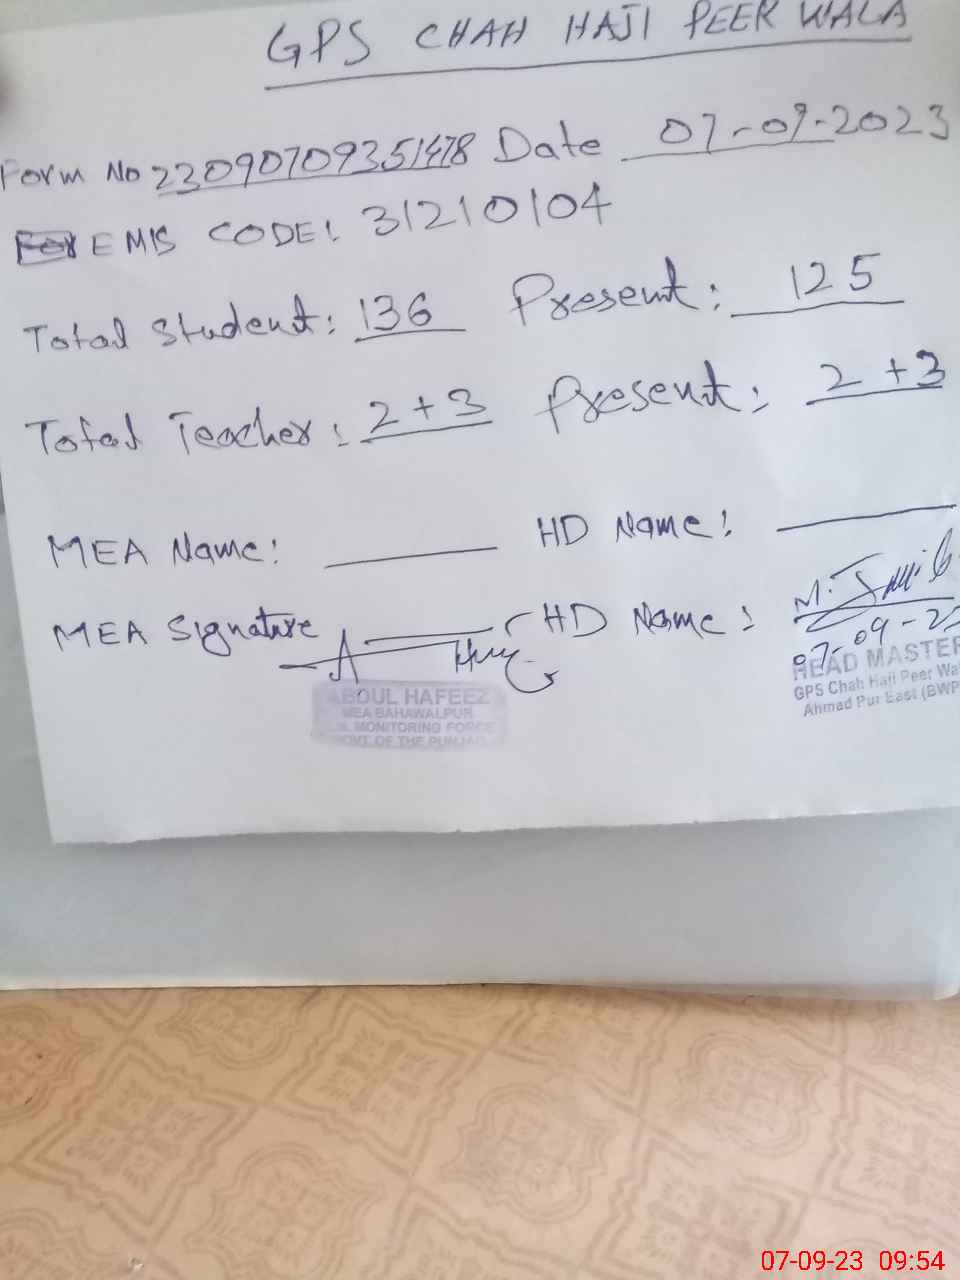 GPS CHAH HAJI PEER WALA
Form No 23090709351478 Date 07-09-2023
EMIS CODE: 31210104
Total Student: 136 Present: 125
Total Teacher: 2+3 Present: 2+3
MEA Name: HD Name:
MEA Signature HD Name:
07-09-23
ABDUL HAFEEZ
MEA BAHAWALPUR
MONITORING FORCE
GOVT. OF THE PUNJAB
HEAD MASTER
GPS Chah Haji Peer Wa
Ahmad Pur East (BWP
07-09-23 09:54